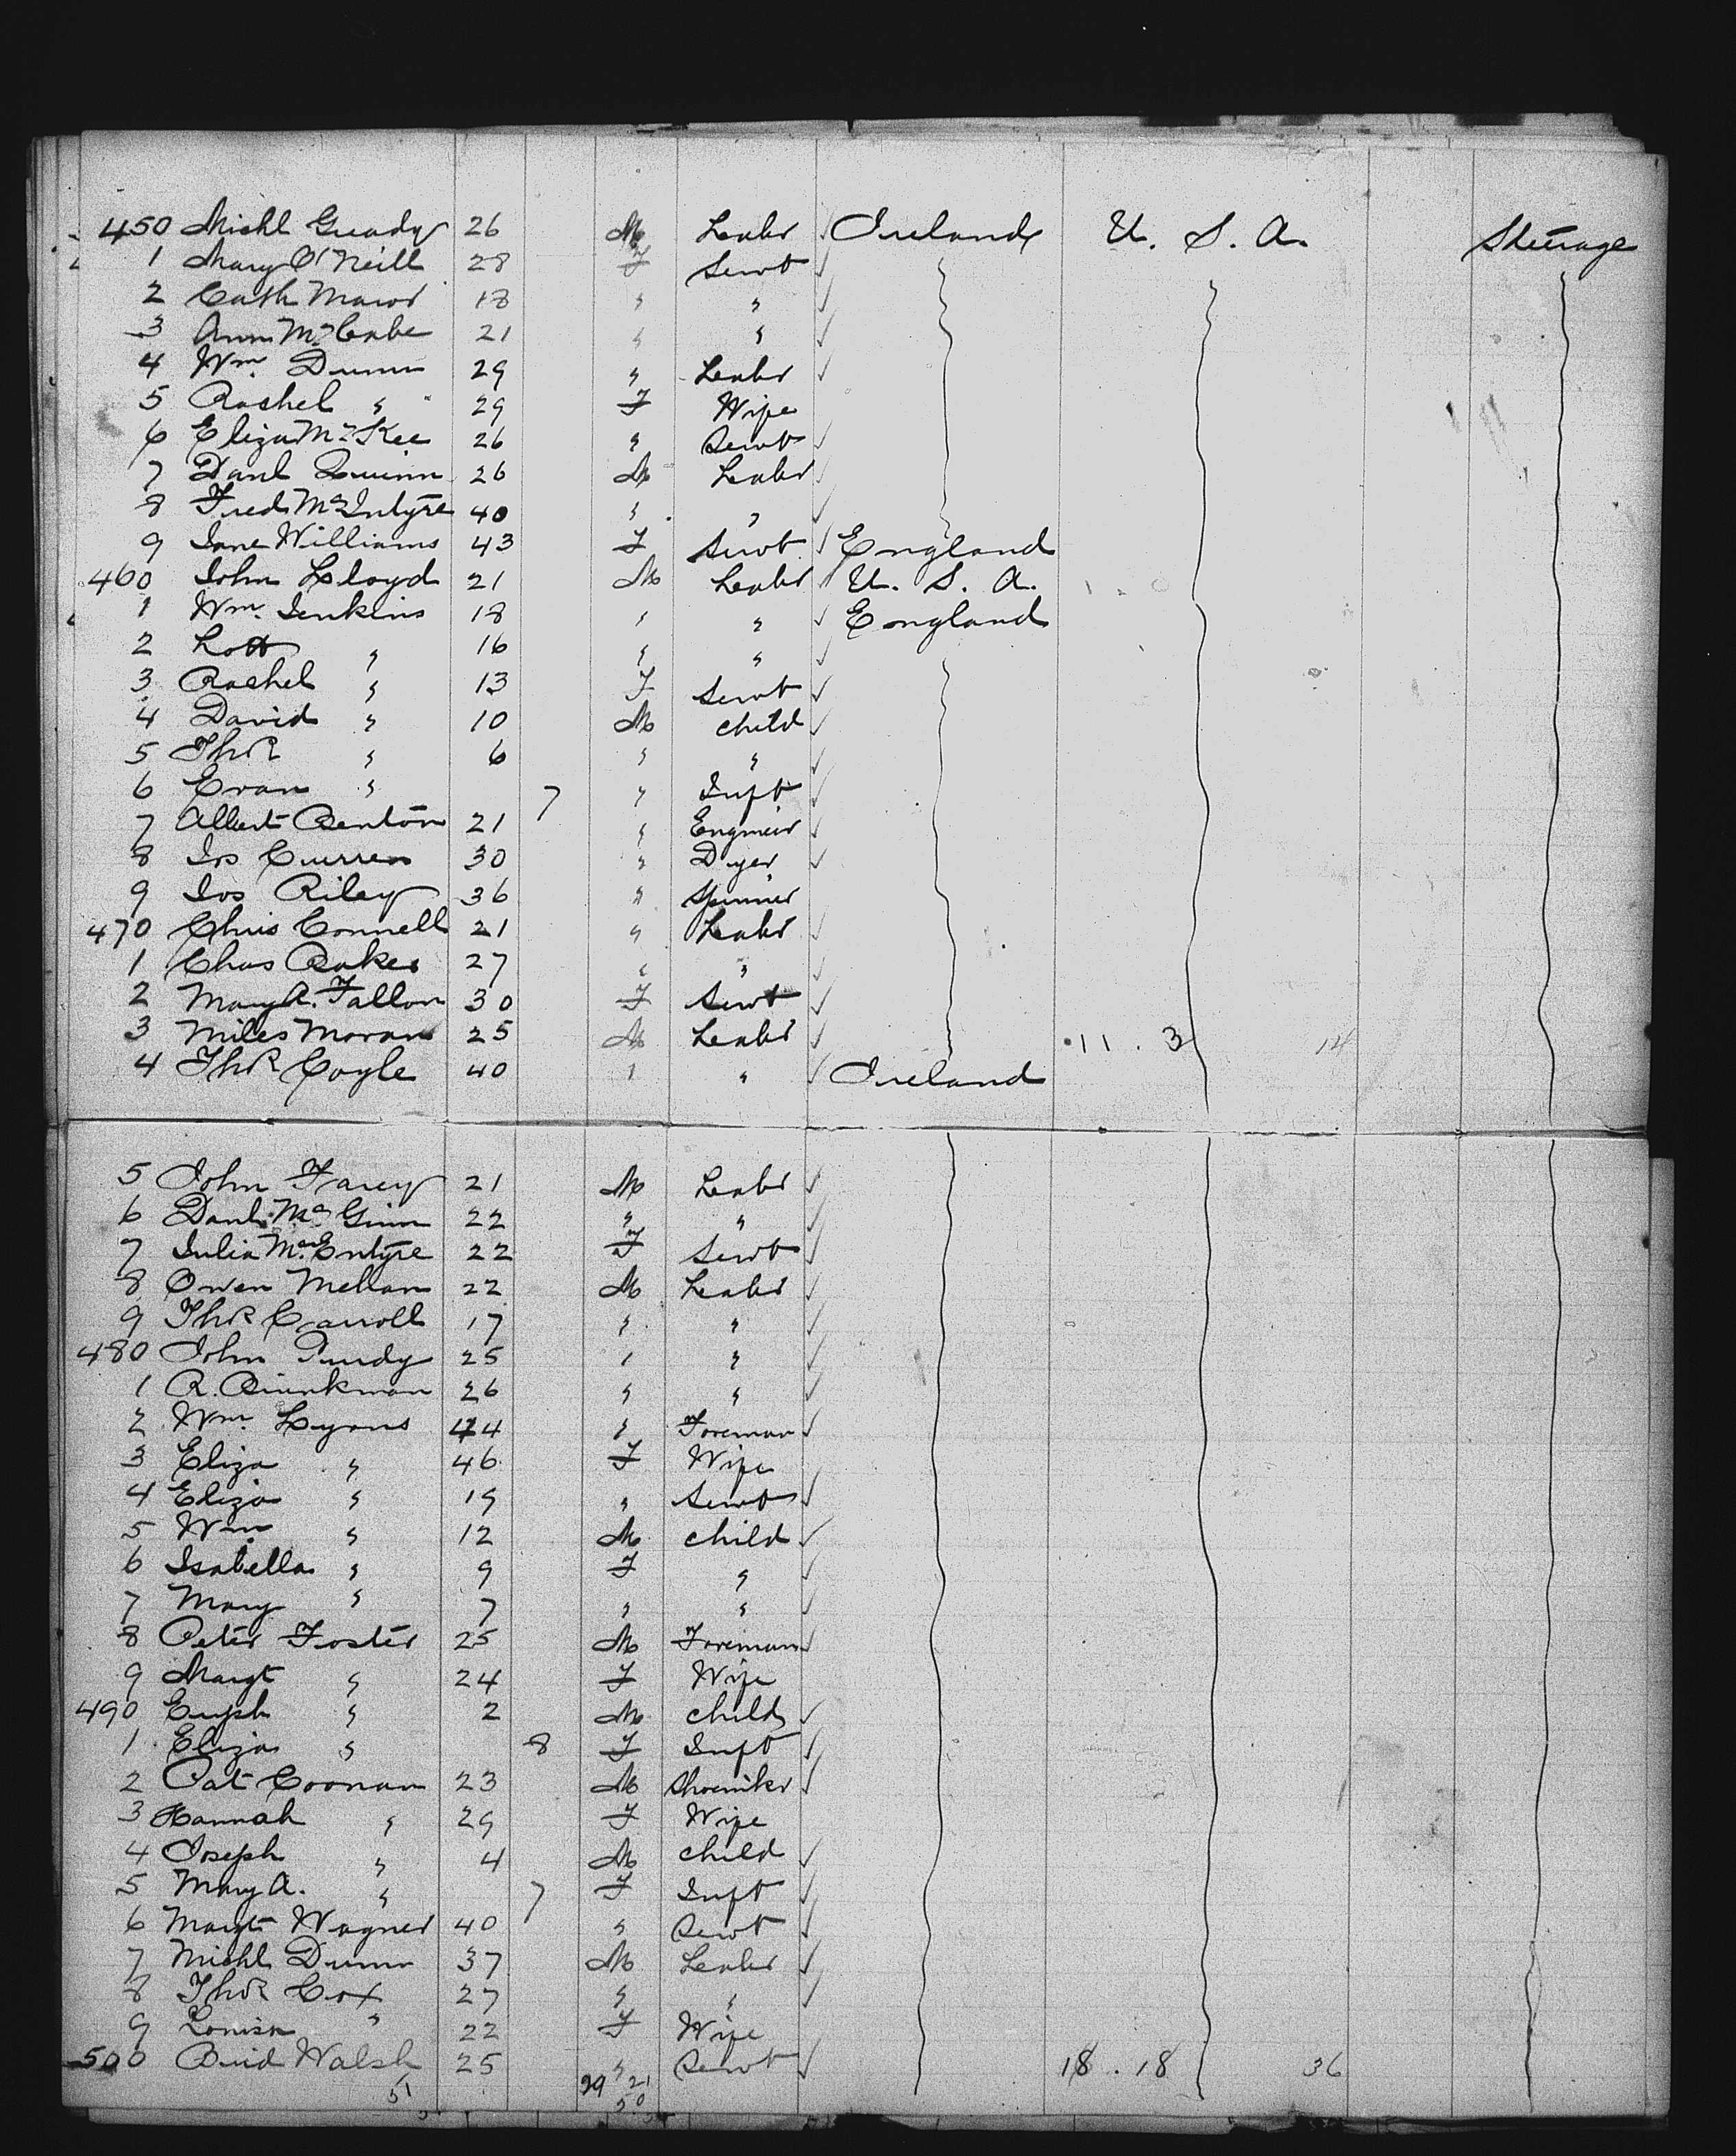 450 Michl Grady 26 M Labr ✓ Ireland U. S. A. Steerage
1 Mary O'Neill 28 F Servt ✓
2 Cath 18 " " ✓
3 Ann McCabe 21 " " ✓
4 Wm. Dunn 29 " Labr ✓
5 Rachel " 29 F Wife
6 Eliza McKee 26 " Servt ✓
7 Danl Quinn 26 M Labr ✓
8 Fred McIntyre 40 " " ✓
9 Jane Williams 43 F Servt ✓ England
460 John Lloyd 21 M Labr U. S. A.
1 Wm. Jenkins 18 " " ✓ England
2 Lott " 16 " " ✓
3 Rachel " 13 F Servt ✓
4 David " 10 M Child ✓
5 Thos " 6 " " ✓
6 Evan " 7 " Inft ✓
7 Albert Benton 21 " Engineer ✓
8 Jos Curren 30 " Dyer ✓
9 Jos Riley 36 " Spinner
470 Chris Connell 21 " Labr ✓
1 Chas Baker 27 " " ✓
2 Mary A. Fallon 30 F Servt ✓
3 Miles Moran 25 M Labr ✓ 11 . 3 14
4 Thos Coyle 40 " " ✓ Ireland
5 John Farey 21 M Labr ✓
6 Danl McGinn 22 " " ✓
7 Julia McEntyre 22 F Servt ✓
8 Owen Mellan 22 M Labr ✓
9 Thos Carroll 17 " " ✓
480 John Purdy 25 " " ✓
1 R. Brinkman 26 " " ✓
2 Wm. Lyons 44 " Foreman ✓
3 Eliza " 46 F Wife
4 Eliza " 19 " Servt ✓
5 Wm " 12 M Child ✓
6 Isabella " 9 F " ✓
7 Mary " 7 " " ✓
8 Peter Foster 25 M Foreman ✓
9 Margt " 24 F Wife
490 Euph " 2 M Child ✓
1 Eliza " 8 F Inft ✓
2 Pat Coonan 23 M Shoemkr ✓
3 Hannah " 29 F Wife
4 Joseph " 4 M Child ✓
5 Mary A. " 7 F Inft ✓
6 Margt Wagner 40 " Servt ✓
7 Michl Dunn 37 M Labr ✓
8 Thos Cox 27 " " ✓
9 Louisa " 22 F Wife
500 Brid Walsh 25 " Servt ✓ 18 . 18 36
51 29 21
50